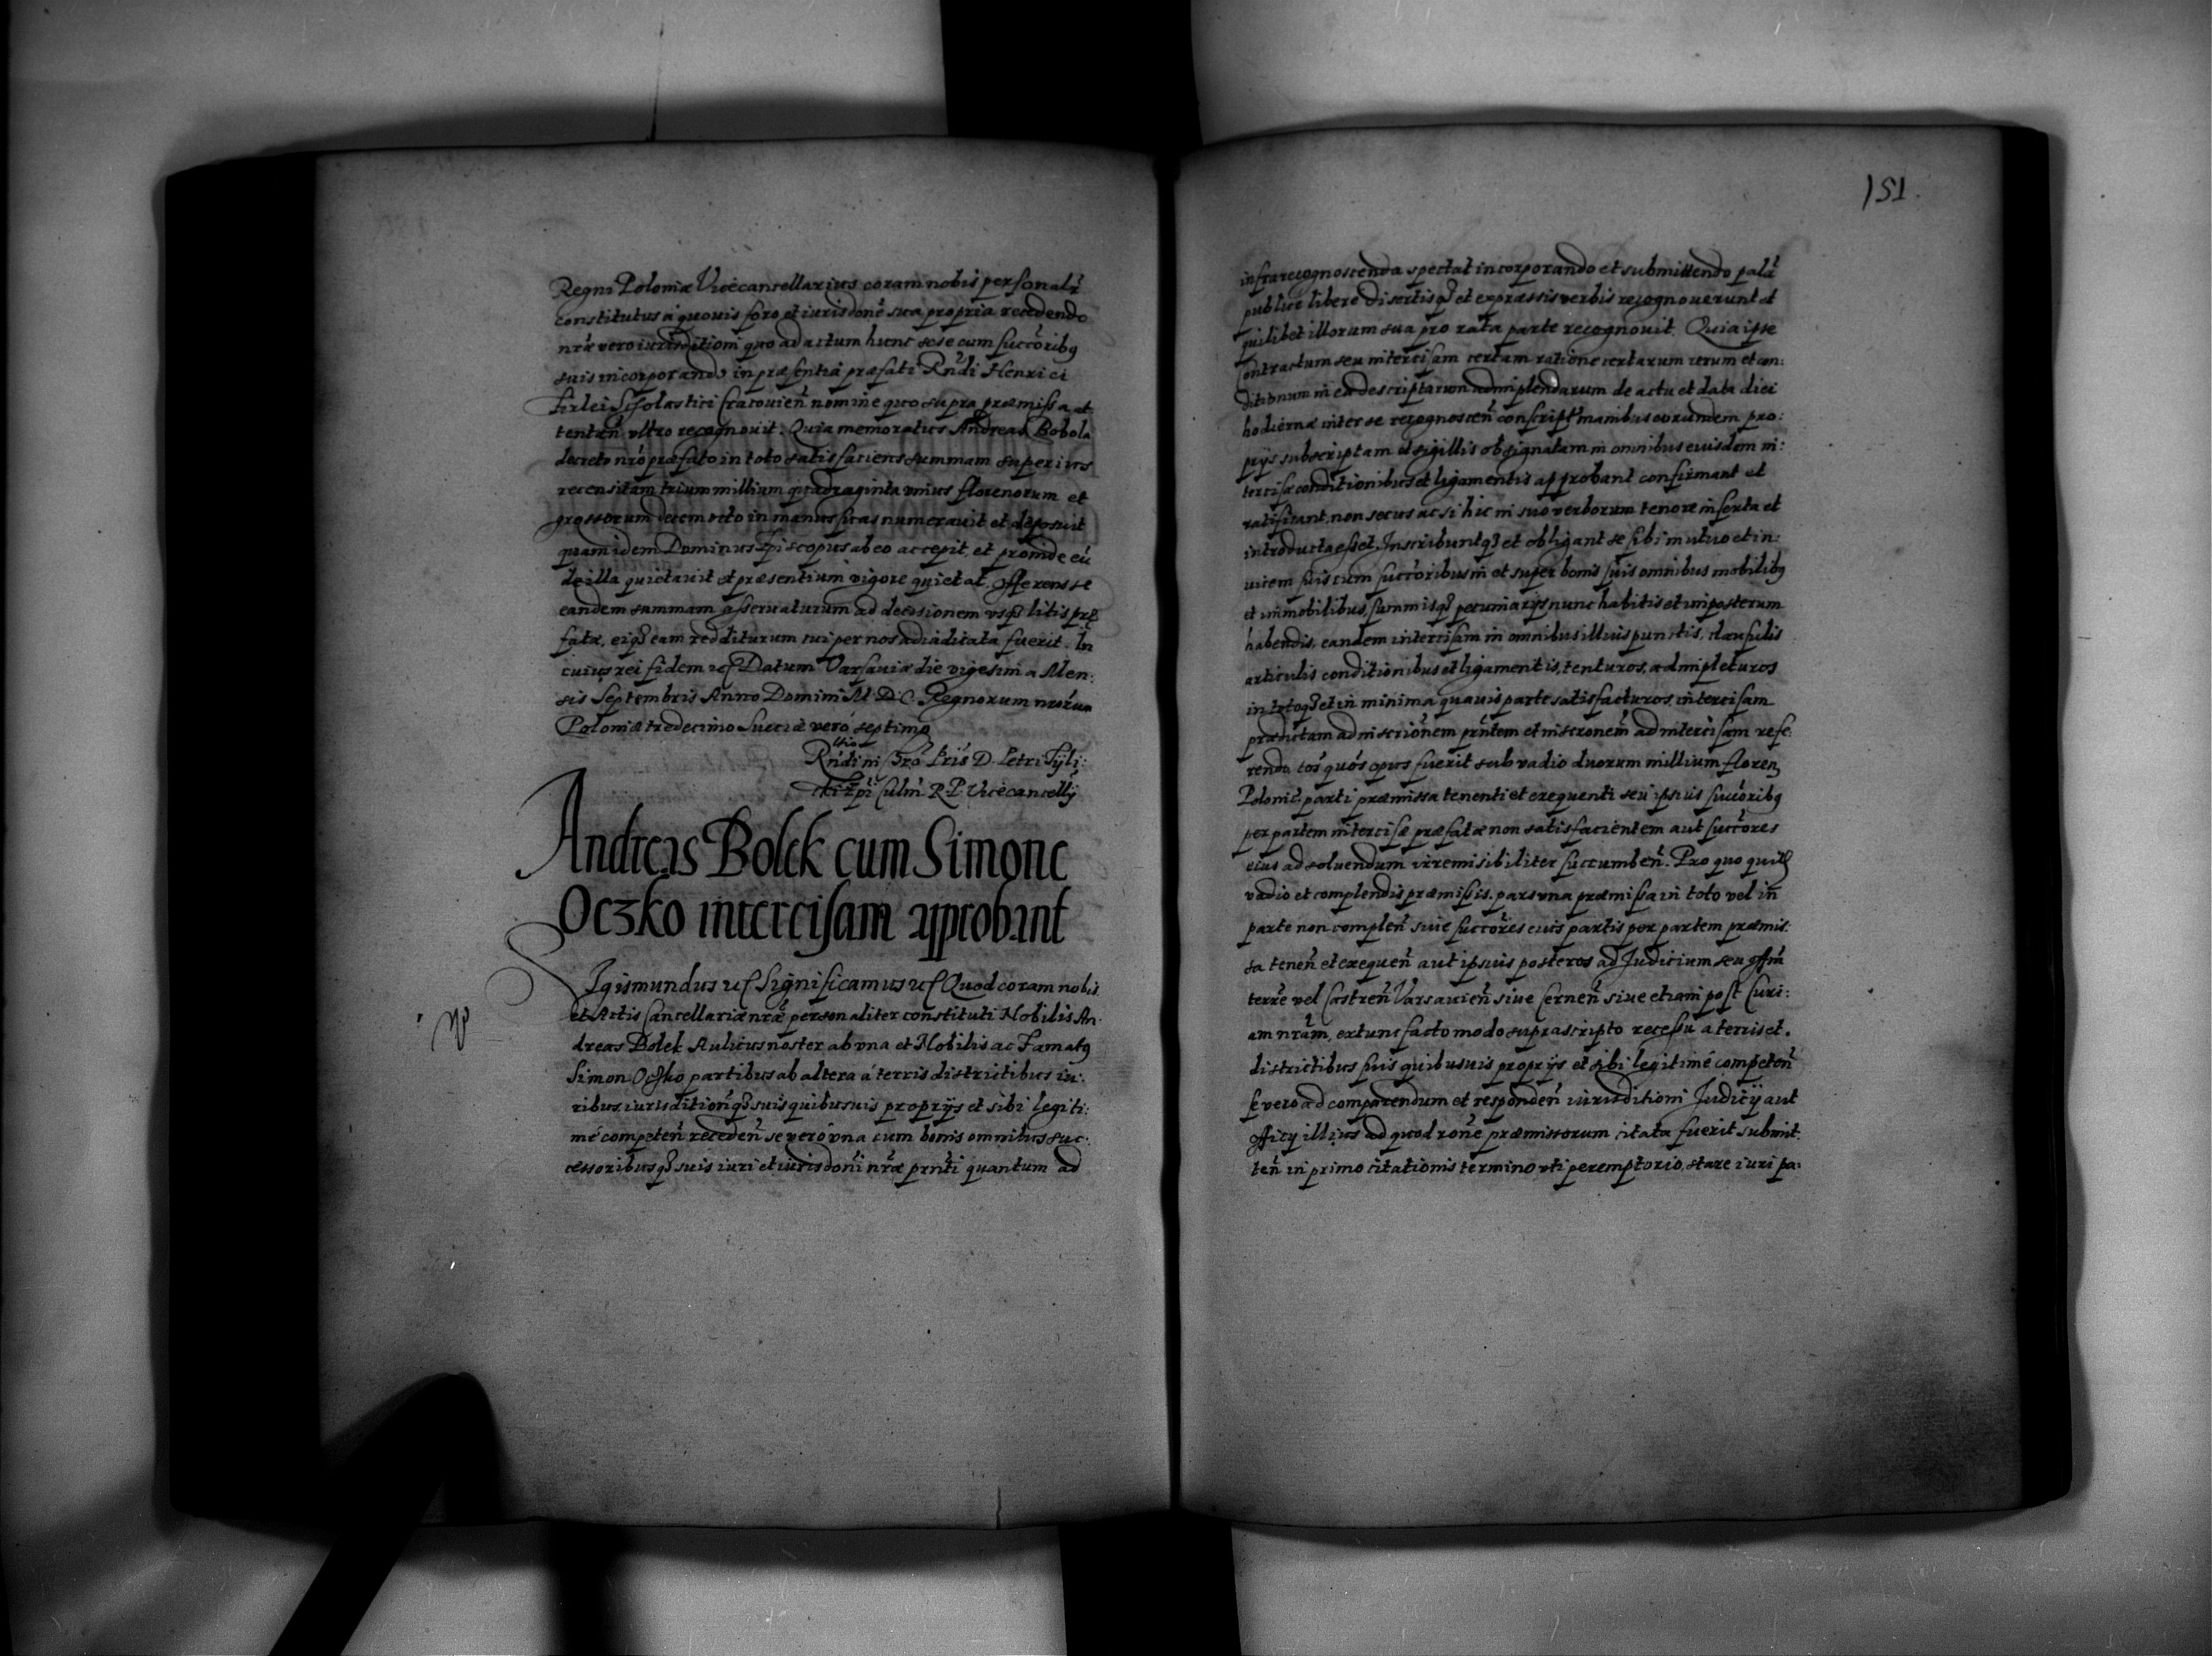 Regni Poloniæ Vicecancellarius coram nobis personalr̃
constitutus á quouis foro et iurisdone sua propria recedendo
nrã vero iurisditioni quo ad actum hunc sese cum succoribq
suis incorporando in præsentia præfati Rndi Henrici
Firlei Scholastici Cracouien̄ nomine quo supra præmissa at
tentan̄ vltro recognouit. Quia memoratus Andreas Bobola
decreto nró præfato in toto satisfaciens summam superius
recensitam trium millium quadraginta vnius florenorum et
grossorum decem octo in manus suas numerauit et deposuit
quam idem Dominus Episcopus ab eo accepit, et proinde eũ
de illa quietauit et præsentium vigore quietat. Offerens se
eandem summam asseruaturum ad decisionem vsq litis præ
fatæ, eiq eam redditurum cui per nos adiudicata fuerit. In
cuius rei fidem etc Datum Varsauiæ die vigesima Men:
sis Septembris Anno Domini M. D. C. Regnorum nrórum
Poloniæ tredecimo Sueciæ veró septimo
Rndi in Chro Pris D. Petri Tyli:
cki Epi Culm R. P. Vicecancellÿ
Andreas Bolek cum Simone
Oczko intercisam approbant
SIgismundus etc Significamus etc Quod coram nobis
et Actis Cancellariæ nræ personaliter constituti Nobilis An.
dreas Bolek Aulicus noster ab vna et Nobilis ac Famatq
Simon Oczko partibus ab altera á terris districtibus iu:
ribus iurisdition̄q suis quibusuis proprijs et sibi legiti:
mé competen̄ receden̄ se veró vna cum bonis omnibus suc:
cessoribusq suis iuri et iurisdoni nræ prnti quantum ad
151.
infra recognoscenda spectat incorporando et submittendo palã
publice libere disertisq et expressis verbis recognouerunt et
quilibet illorum sua pro rata parte recognouit. Quia ipse
Contractum seu intercisam certam ratione certarum rerum et con:
ditionum in ea descriptarum adimplendarum de actu et data diei
hodiernæ inter se recognoscen̄ conscript manibus eorundem pro:
prijs subscriptam et sigillis obsignatam in omnibus eiusdem in:
tercisæ conditionibus et ligamentis approbant confirmant et
ratificant, non secus ac si hic in suo verborum tenore inserta et
introducta esset. Inscribuntq et obligant se sibi mutuo et in:
uicem suis cum succoribus in et super bonis suis omnibus mobilibq
et immobilibus, summisq pecuniarijs nunc habitis et imposterum
habendis, eandem intercisam in omnibus illius punctis, clausulis
articulis conditionibus et ligamentis, tenturos, adimpleturos
in totoq et in minima quauis parte satisfacturos, intercisam
prædictam ad inscrionem prntem et inscronem ad intercisam refe:
rendo, tos quos opus fuerit sub vadio duorum millium floren
Polonic. parti præmissa tenenti et exequenti seu ipsius succoribq
per partem intercisæ præfatæ non satisfacientem aut succores
eius ad soluendum irremisibiliter succumben̄. Pro quo quid
vadio et complendis præmissis, pars vna præmissa in toto vel in
parte non complen̄ siue succores eius partis per partem præmis:
sa tenen̄ et exequen̄ aut ipsius posteros ad Judicium seu Offm
terre vel Castren̄ Varsauien̄ siue Cernen̄ siue etiam post Curi:
am nram, extunc facto modo suprascripto recessu a terris et
districtibus suis quibusuis proprijs et sibi legitimé competen̄
se vero ad comparendum et responden̄ iurisditioni Judicij aut
Officij illius ad quod rone præmissorum citata fuerit submit:
ten̄ in primo citationis termino vti peremptorio, stare iuri pa: